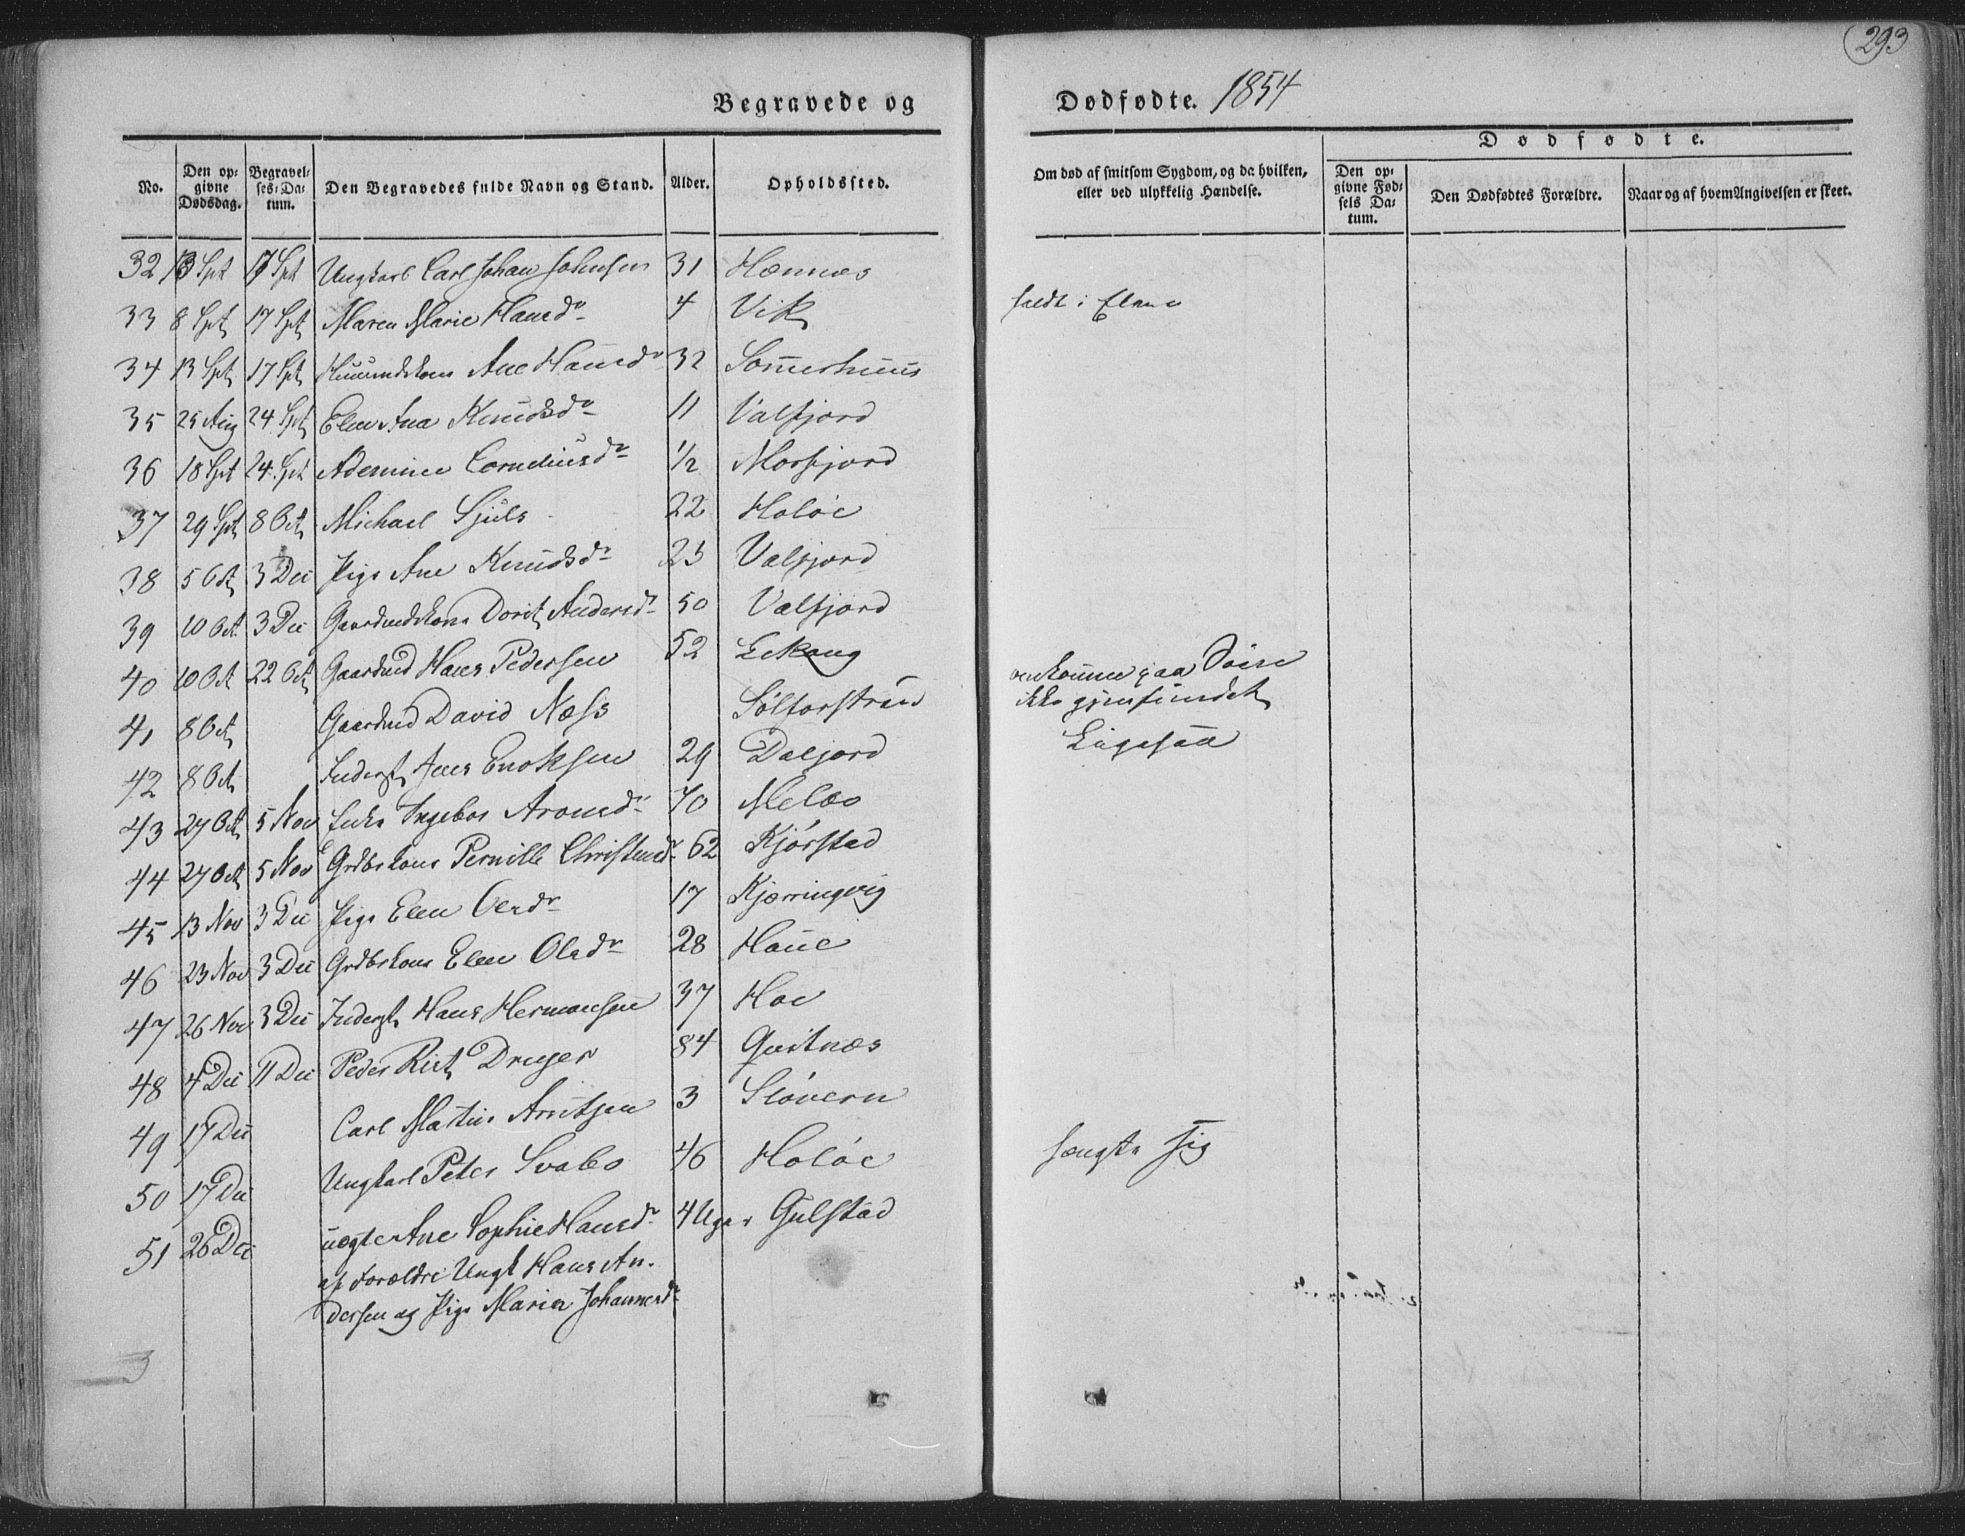 293
Begravede og Dødfødte. 1854
Dødfødte.
No. Den opgivne Dødsdag. Begravelses-Datum. Den Begravedes fulde Navn og Stand. Alder. Opholdssted. Om død af smitsom Sygdom, og da hvilken, eller ved ulykkelig Hændelse. Den opgivne Fødsels Datum. Den Dødfødtes Forældre. Naar og af hvem Angivelsen er skeet.
32 13 Spt 17 Spt Ungkarl Carl Johan Johnsen 31 Hennes
33 8 Spt 17 Spt Maren Marie Hansdr 4 Vik faldt i Elven
34 13 Spt 17 Spt Huusmdskone Ane Hansdr 32 Sommerhuus
35 25 Aug 24 Spt Elen Ana Knudsdr 11 Valfjord
36 18 Spt 24 Spt Corneliusdr 1/2 Morfjord
37 29 Spt 8 Oct Michael Sjuls 22 Haløe
38 5 Oct 3 Dec Pige Ane Knudsdr 23 Valfjord
39 10 Oct 3 Dec Gaardmdskone Dorit Andersdr 50 Valfjord
40 10 Oct 22 Oct Gaardmd Hans Pedersen 52 Lekang
41 8 Oct Gaardmd David Næss Sølfarstrand omkommen paa Søen ikke gjenfundet
42 8 Oct Inderst Jens Enoksen 29 Daljord Ligesaa
43 27 Oct 5 Nov Enke Ingebor Aronsdr 70 Melæs
44 27 Oct 5 Nov Grdbrkone Pernille Christensdr 62 Kjørstad
45 13 Nov 3 Dec Pige Elen Oersdr 17 Kjærringvig
46 23 Nov 3 Dec Grdbrkone Elen Olsdr 28 Haue
47 26 Nov 3 Dec Inderst Hans Hermansen 37 Hoe
48 4 Dec 11 Dec Peder Rist Dreyer 84 Qvitnæs
49 17 Dec Carl Matius Arntsen 3 Sløvern
50 17 Dec Ungkarl Peter Svabo 46 Haløe hængte sig
51 26 Dec uægte Ane Sophie Hansdr 4 Uger Gulstad
af Forældre Ungk Hans An-
dersen og Pige Maria Johannesdr